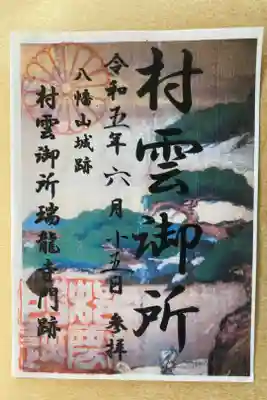 村雲御所
令和五年六月廿五日 参拝
八幡山城跡
村雲御所瑞龍寺門跡